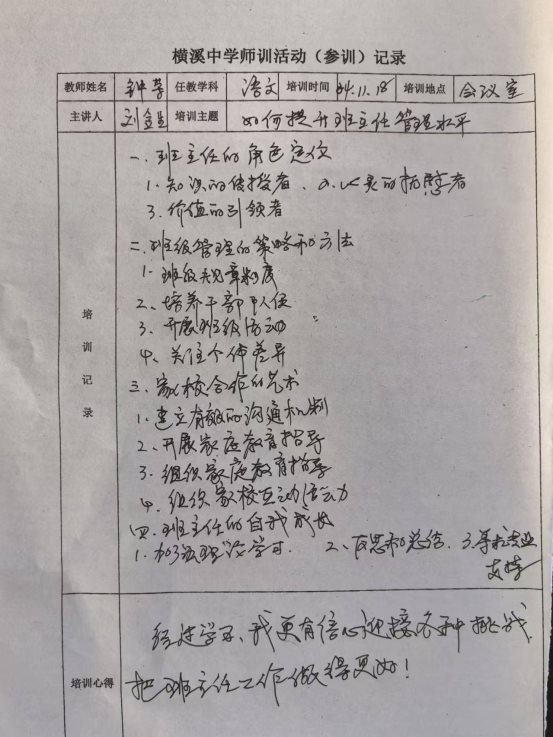 横溪中学师训活动（参训）记录
教师姓名 钟 任教学科 语文 培训时间 24.11.18 培训地点 会议室
主讲人 刘金 培训主题 如何提升班主任管理水平
培训记录
一、班主任的角色定位
1.知识的传授者、2.心灵的抚慰者
3.价值的引领者
二、班级管理的策略和方法
1.班级规章制度
2、培养干部
3、开展班级活动
4、关注个体差异
三、家校合作的艺术
1.建立有效的沟通机制
2、开展家庭教育指导
3.组织家庭教育指导
4.组织家校互动活动
四、班主任的自我成长
1.加强理论学习. 2、反思和总结. 3.寻求专业
支持
培训心得
经过学习，我更有信心迎接各种挑战
把班主任工作做得更好！